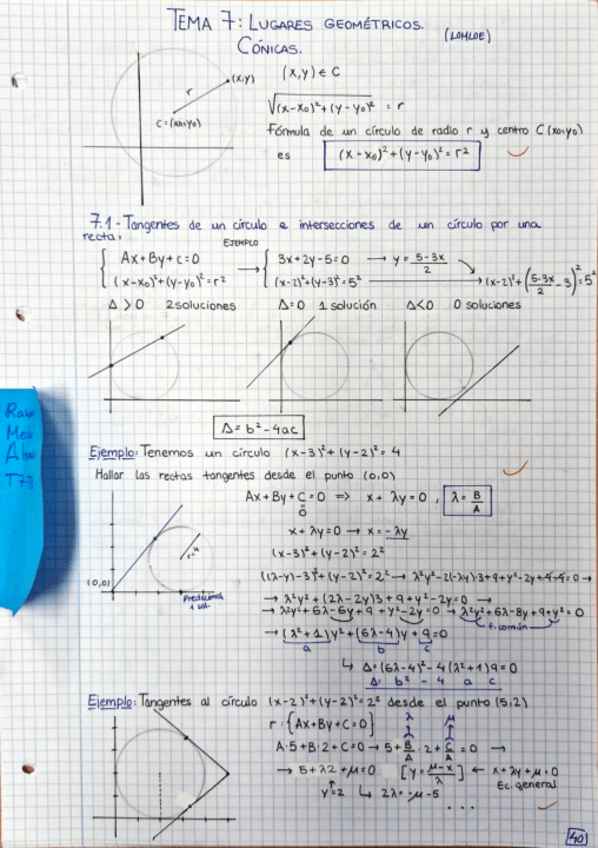 TEMA 7: LUGARES GEOMÉTRICOS.
CÓNICAS. (LOMLOE)
(x,y)
r
C=(x₀,y₀)
(x,y) ∈ C
√(x-x₀)²+(y-y₀)² = r
Fórmula de un círculo de radio r y centro C(x₀,y₀)
es (x-x₀)²+(y-y₀)²=r²
7.1- Tangentes de un círculo e intersecciones de un círculo por una
recta.
EJEMPLO
{ Ax+By+C=0 → { 3x+2y-5=0 → y=(5-3x)/2
(x-x₀)²+(y-y₀)²=r² (x-2)²+(y-3)²=5² → (x-2)²+((5-3x)/2-3)²=5²
Δ>0 2 soluciones Δ=0 1 solución Δ<0 0 soluciones
Δ=b²-4ac
Ejemplo: Tenemos un círculo (x-3)²+(y-2)²=4
Hallar las rectas tangentes desde el punto (0,0)
Ax+By+C=0 ⇒ x+λy=0, λ=B/A
0
x+λy=0 → x=-λy
(x-3)²+(y-2)²=2²
((λ-y)-3)²+(y-2)²=2² → λ²y²-2(-λy)·3+9+y²-2y+4-4=0 →
→ λ²y²+(2λ-2y)3+9+y²-2y=0 →
→ λ²y²+6λ-6y+9+y²-2y=0 → λ²y²+6λ-8y+9+y²=0
f.común
→ (λ²+1)y²+(6λ-4)y+9=0
a b c
(0,0)
1 sol.
↳ Δ=(6λ-4)²-4(λ²+1)9=0
Δ= b² - 4 a c
Ejemplo: Tangentes al círculo (x-2)²+(y-2)²=2² desde el punto (5,2)
r={Ax+By+C=0} λ μ
A·5+B·2+C=0 → 5+B/A·2+C/A=0 →
→ 5+λ2+μ=0 [y=(μ-x)/λ] ← x+λy+μ=0
Ec. general
y=2 ↳ 2λ=-μ-5
...
40